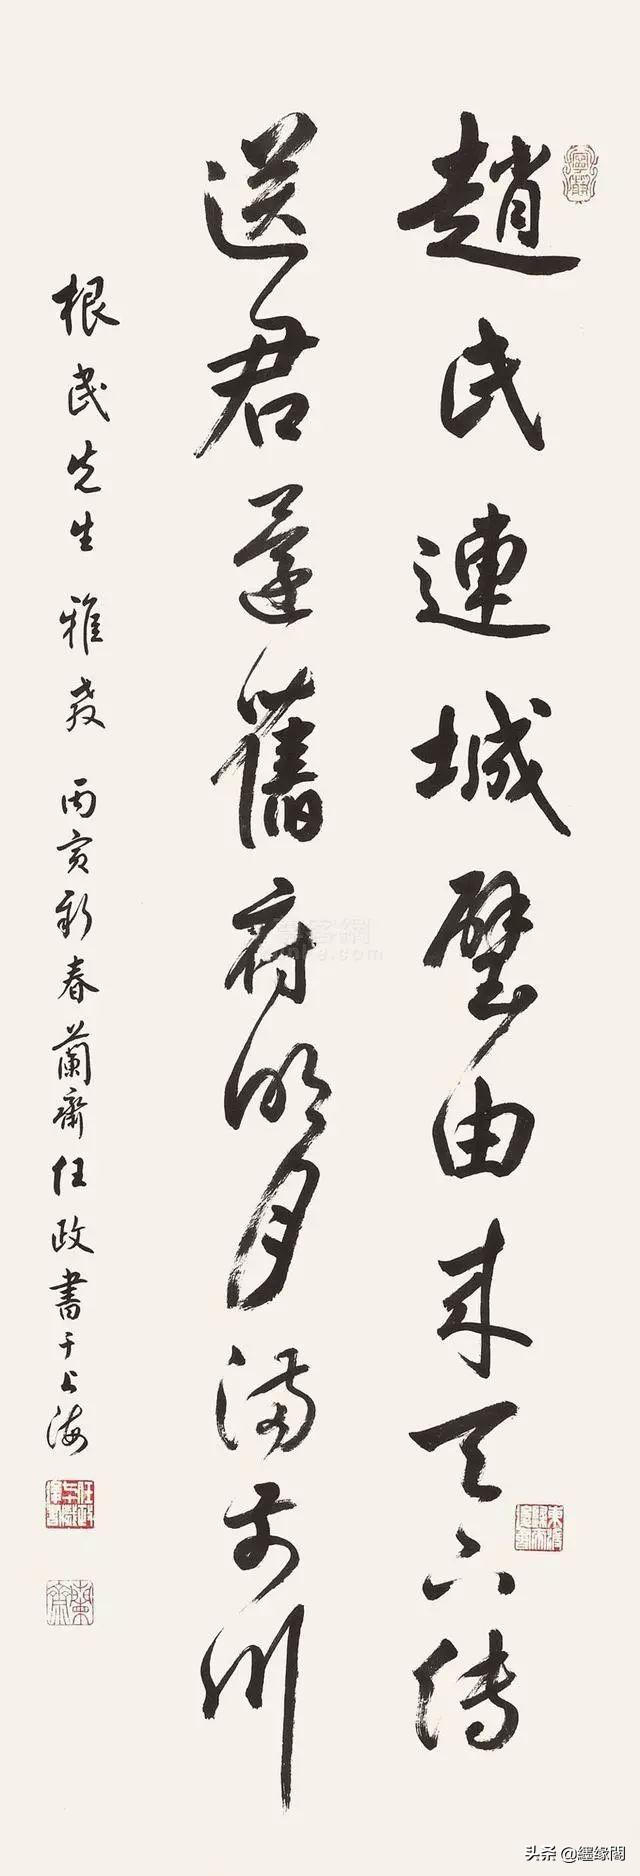 趙氏連城璧由来天下傳
送君還舊府明月滿前川
根民先生雅教 丙寅新春蘭齋任政書于上海
寧靜
蘭齋